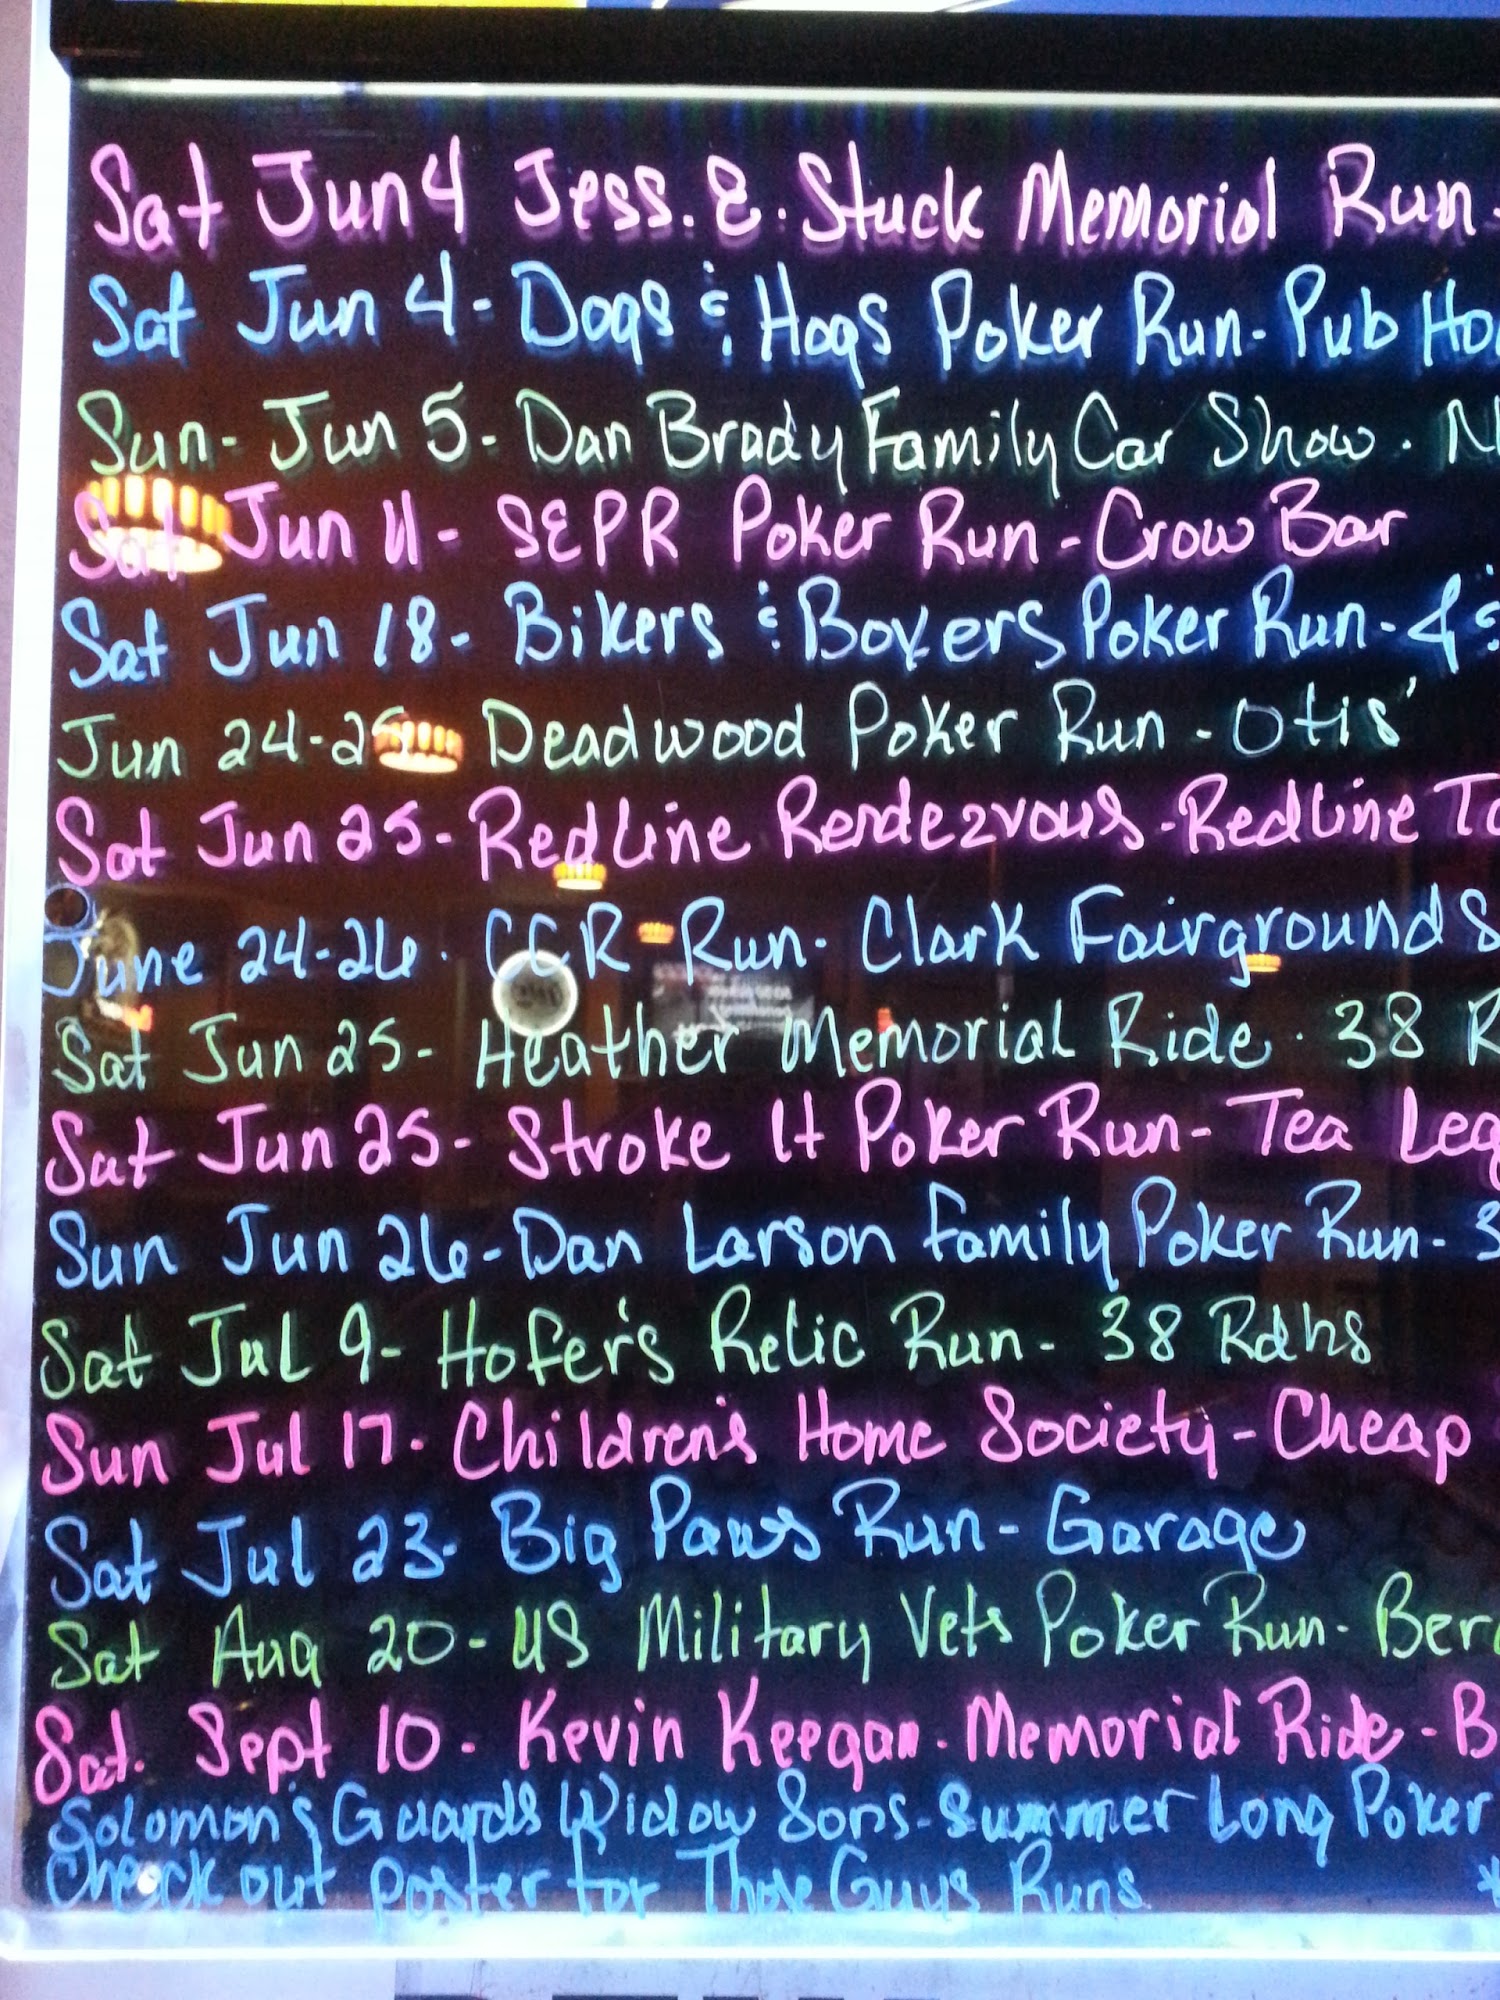 Sat Jun 4 Jess. & Stuck Memorial Run -
Sat Jun 4 - Dogs & Hogs Poker Run - Pub Ho
Sun - Jun 5 - Dan Brady Family Car Show.
Sat Jun 11 - SEPR Poker Run - Crow Bar
Sat Jun 18 - Bikers & Boxers Poker Run -
Jun 24-25 Deadwood Poker Run - Otis'
Sat Jun 25 - Redline Rendezvous - Redline
June 24-26. CCR Run - Clark Fairgrounds
Sat Jun 25 - Heather Memorial Ride. 38 R
Sat Jun 25 - Stroke It Poker Run - Tea Leg
Sun Jun 26 - Dan Larson Family Poker Run - 3
Sat Jul 9 - Hofer's Relic Run - 38 Rdhs
Sun Jul 17 - Children's Home Society - Cheap
Sat Jul 23 - Big Paws Run - Garage
Sat Aug 20 - US Military Vets Poker Run - Ber
Sat. Sept 10 - Kevin Keegan. Memorial Ride - B
Solomon's Guards Widow Sons - Summer Long Poker
Check out poster for Those Guys Runs *